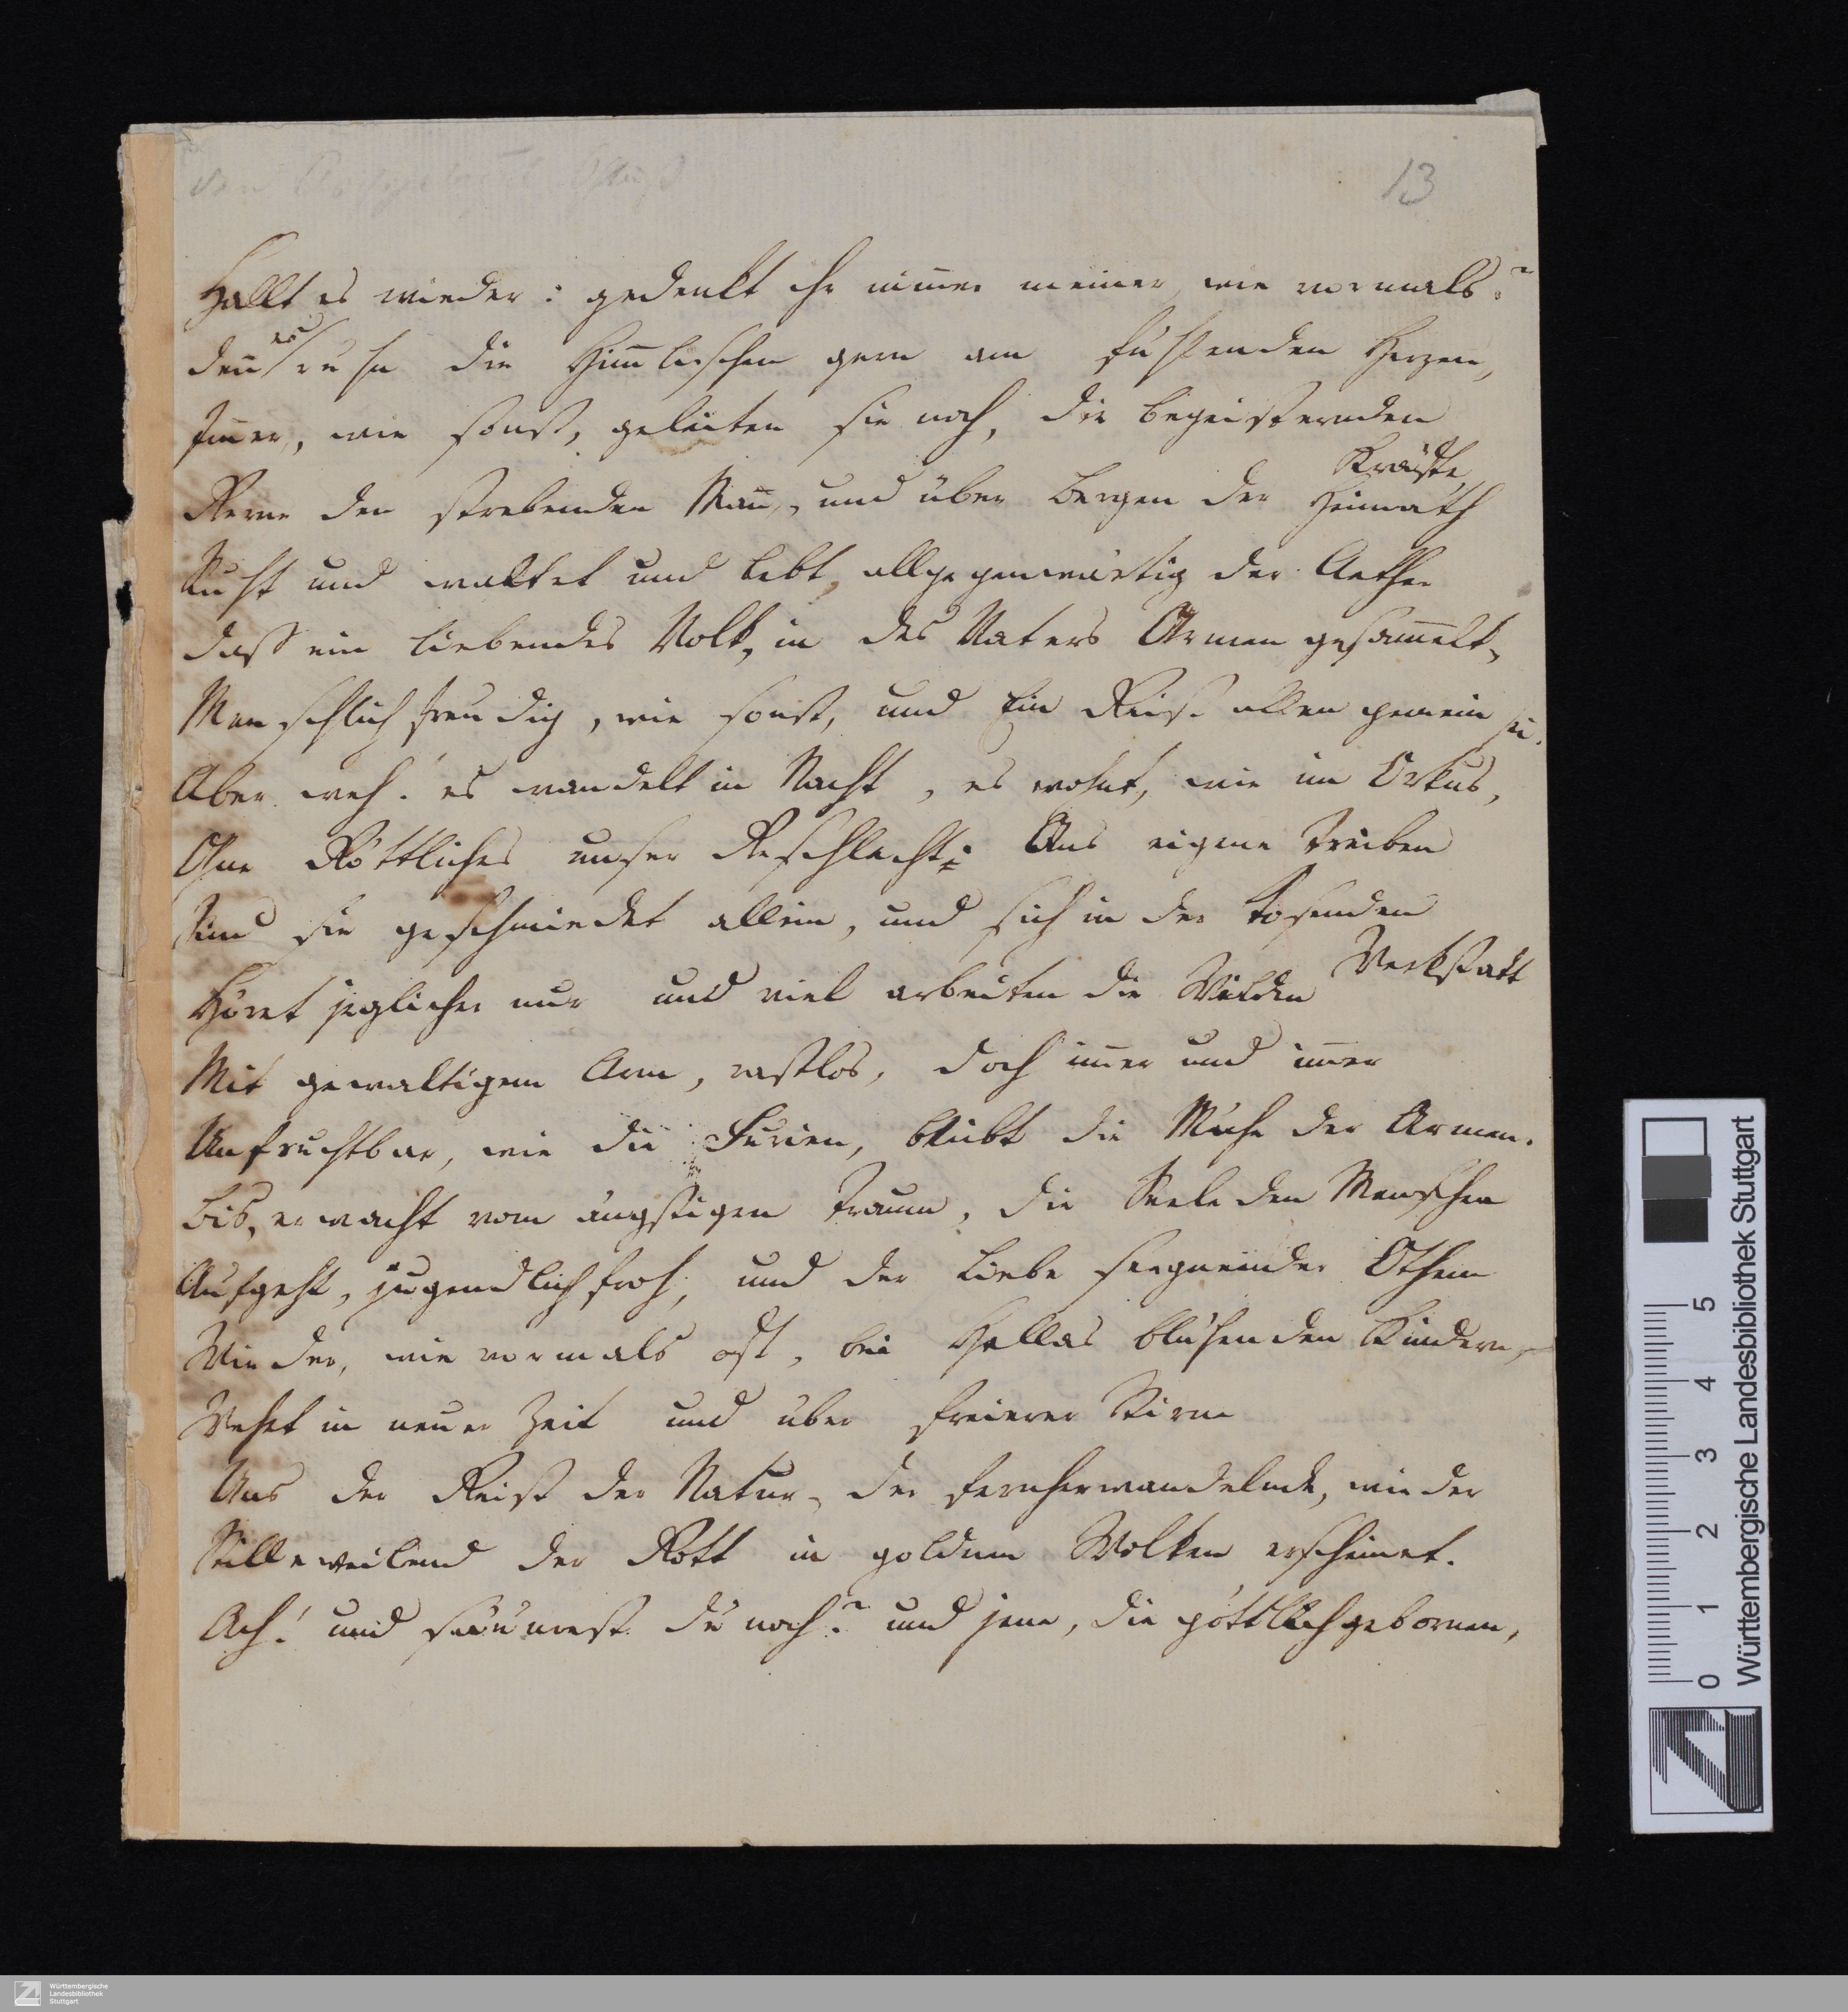 13
Hallt es wieder: gedenkt ihr nim̄er meiner, wie vormals?
Deñ es ruhn die Him̄lischen gern am fühlenden Herzen,
Im̄er, wie sonst, geleiten sie noch, die begeisternden
Kräfte
Gerne den strebenden Mañ, und über Bergen der Heimath
Ruht und waltet und lebt allgegenwärtig der Aether
Daß ein liebendes Volk, in des Vaters Armen gesam̄elt,
Menschlich freudig, wie sonst, und Ein Geist allen gemein sei.
Aber weh! es wandelt in Nacht, es wohnt, wie im Orkus,
Ohne Göttliches unser Geschlecht: Ans eigne Treiben
Sind sie geschmiedet allein, und sich in der tosenden
Werkstatt
Höret jeglicher nur und viel arbeiten die Wilden
Mit gewaltigem Arm, rastlos, doch im̄er und im̄er
Unfruchtbar, wie die Furien, bleibt die Mühe der Armen.
Bis, erwacht vom ängstigen Traum, die Seele den Menschen
Aufgeht, jugendlich froh, und der Liebe seegnender Othem
Wieder, wie vormals oft, bei Hellas blühenden Kindern,
Wehet in neuer Zeit und über freierer Stirne
Uns der Geist der Natur, der fernherwandelnde, wieder
Stilleweilend der Gott in goldnen Wolken erscheinet.
Ach! und säumest du noch? und jene, die göttlichgebornen,
0 1 2 3 4 5
Württembergische Landesbibliothek Stuttgart
Württembergische
Landesbibliothek
Stuttgart